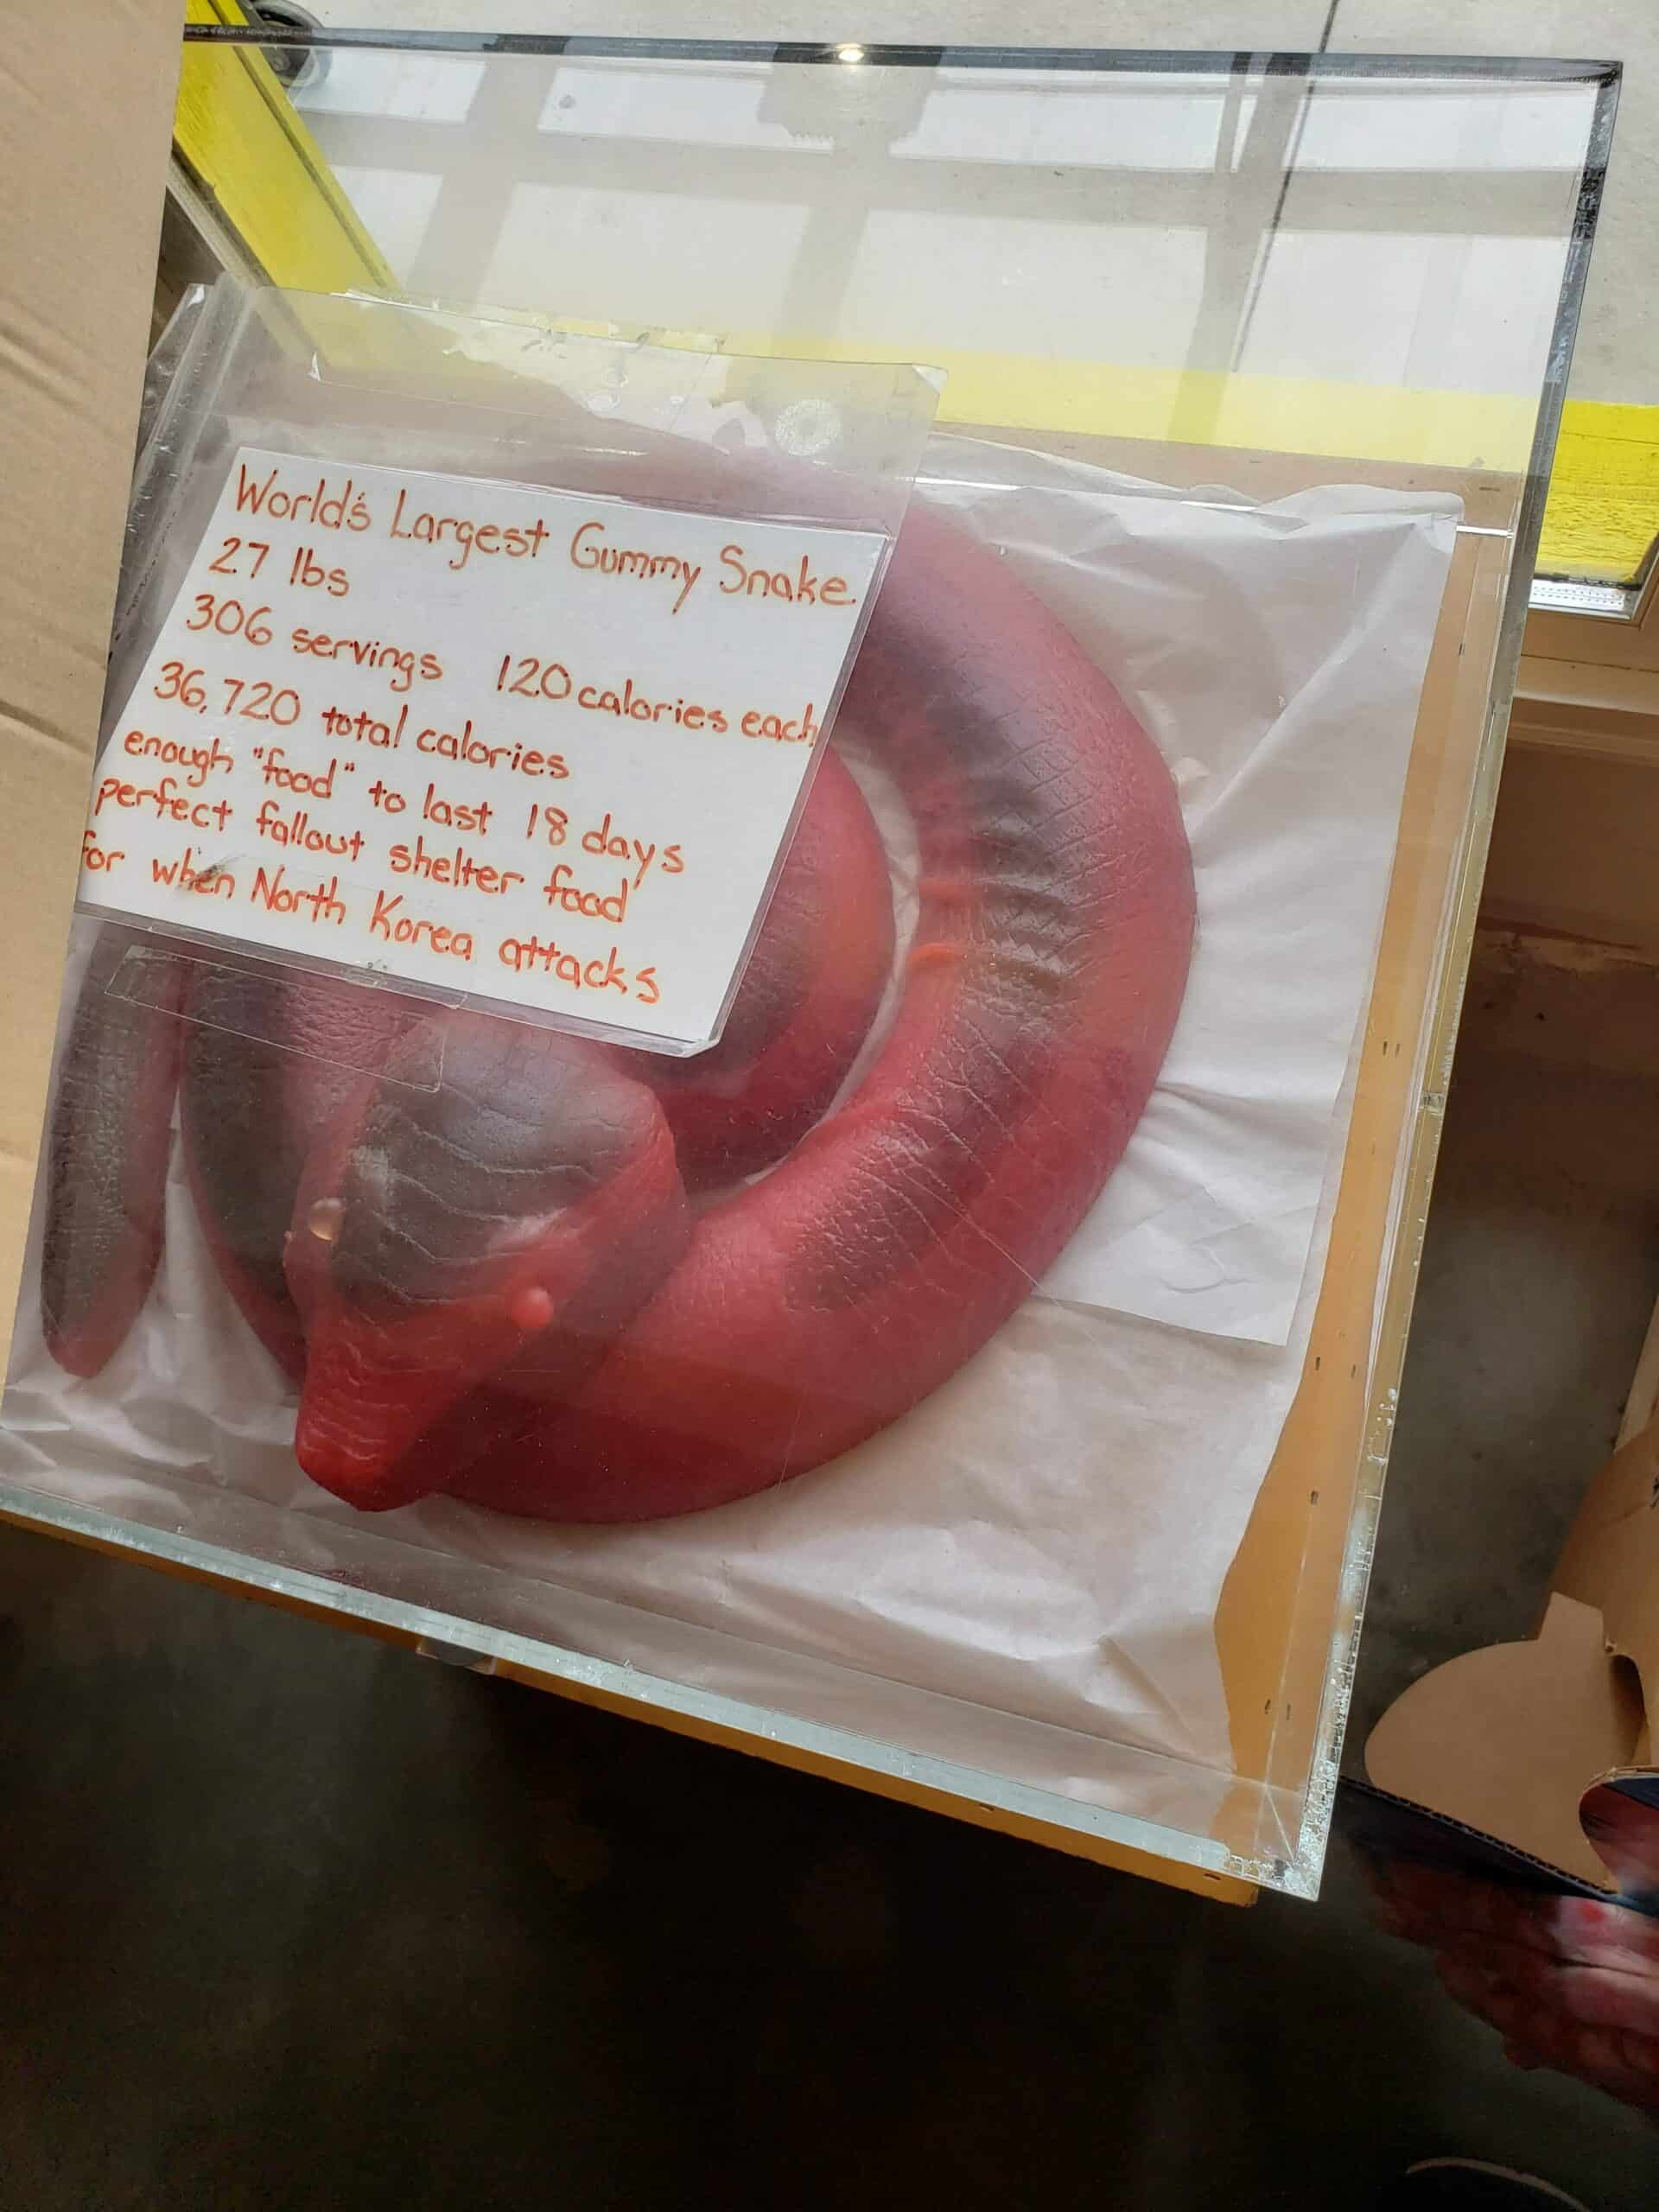 World's Largest Gummy Snake
27 lbs
306 servings 120 calories each
36,720 total calories
enough "food" to last 18 days
perfect fallout shelter food
for when North Korea attacks